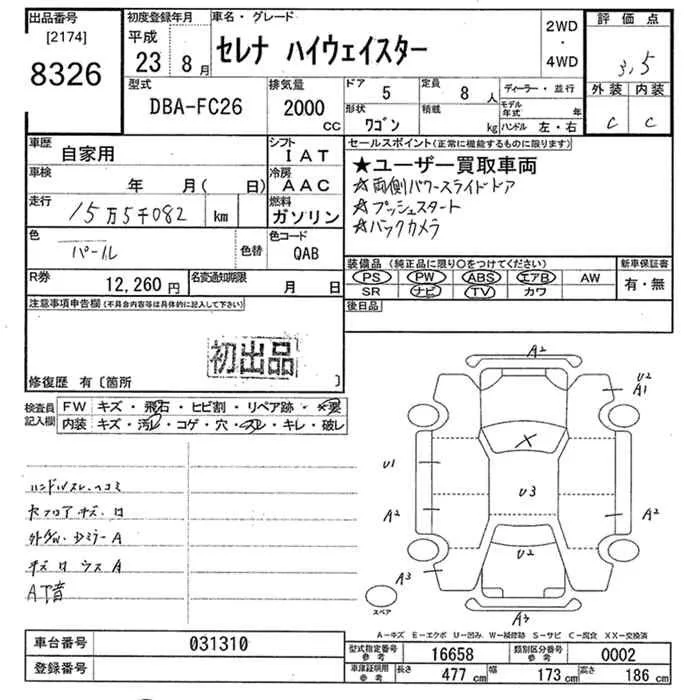 出品番号
[2174]
8326
初度登録年月
平成
23 8月
車名・グレード
セレナ ハイウェイスター
2WD
・
4WD
評価点
3,5
外装 内装
C C
型式
DBA-FC26
排気量
2000
CC
ドア
5
定員
8人
形状
ワゴン
積載
kg
ディーラー・並行
モデル年式
年
ハンドル 左・右
車歴
自家用
シフト
IAT
車検
年 月( 日)
冷房
AAC
走行
15万5千082 km
燃料
ガソリン
色
パール
色替
色コード
QAB
R券
12,260円
名変通知期限
月 日
セールスポイント(正常に機能するものに限ります)
★ユーザー買取車両
☆両側パワースライドドア
☆プッシュスタート
☆バックカメラ
装備品(純正品に限り○をつけてください)
PS PW ABS エアB AW
SR ナビ TV カワ
新車保証書
有・無
後日品
注意事項申告欄(不具合内容等は具体的に記入して下さい)
初出品
修復歴 有〔箇所 〕
検査員
記入欄
FW キズ・飛石・ヒビ割・リペア跡・×要
内装 キズ・汚レ・コゲ・穴・スレ・キレ・破レ
ハンドルスレ、ヘコミ
AT音
A2
U2
A1
X
U1
U3
A2
A2
U2
A3
A3
スペア
A-キズ E-エクボ U-凹み W-補修跡 S-サビ C-腐食 XX-交換済
車台番号
031310
登録番号
型式指定番号
参考
16658
類別区分番号
参考
0002
車庫証明用
参考
長さ
477cm
幅
173cm
高さ
186cm